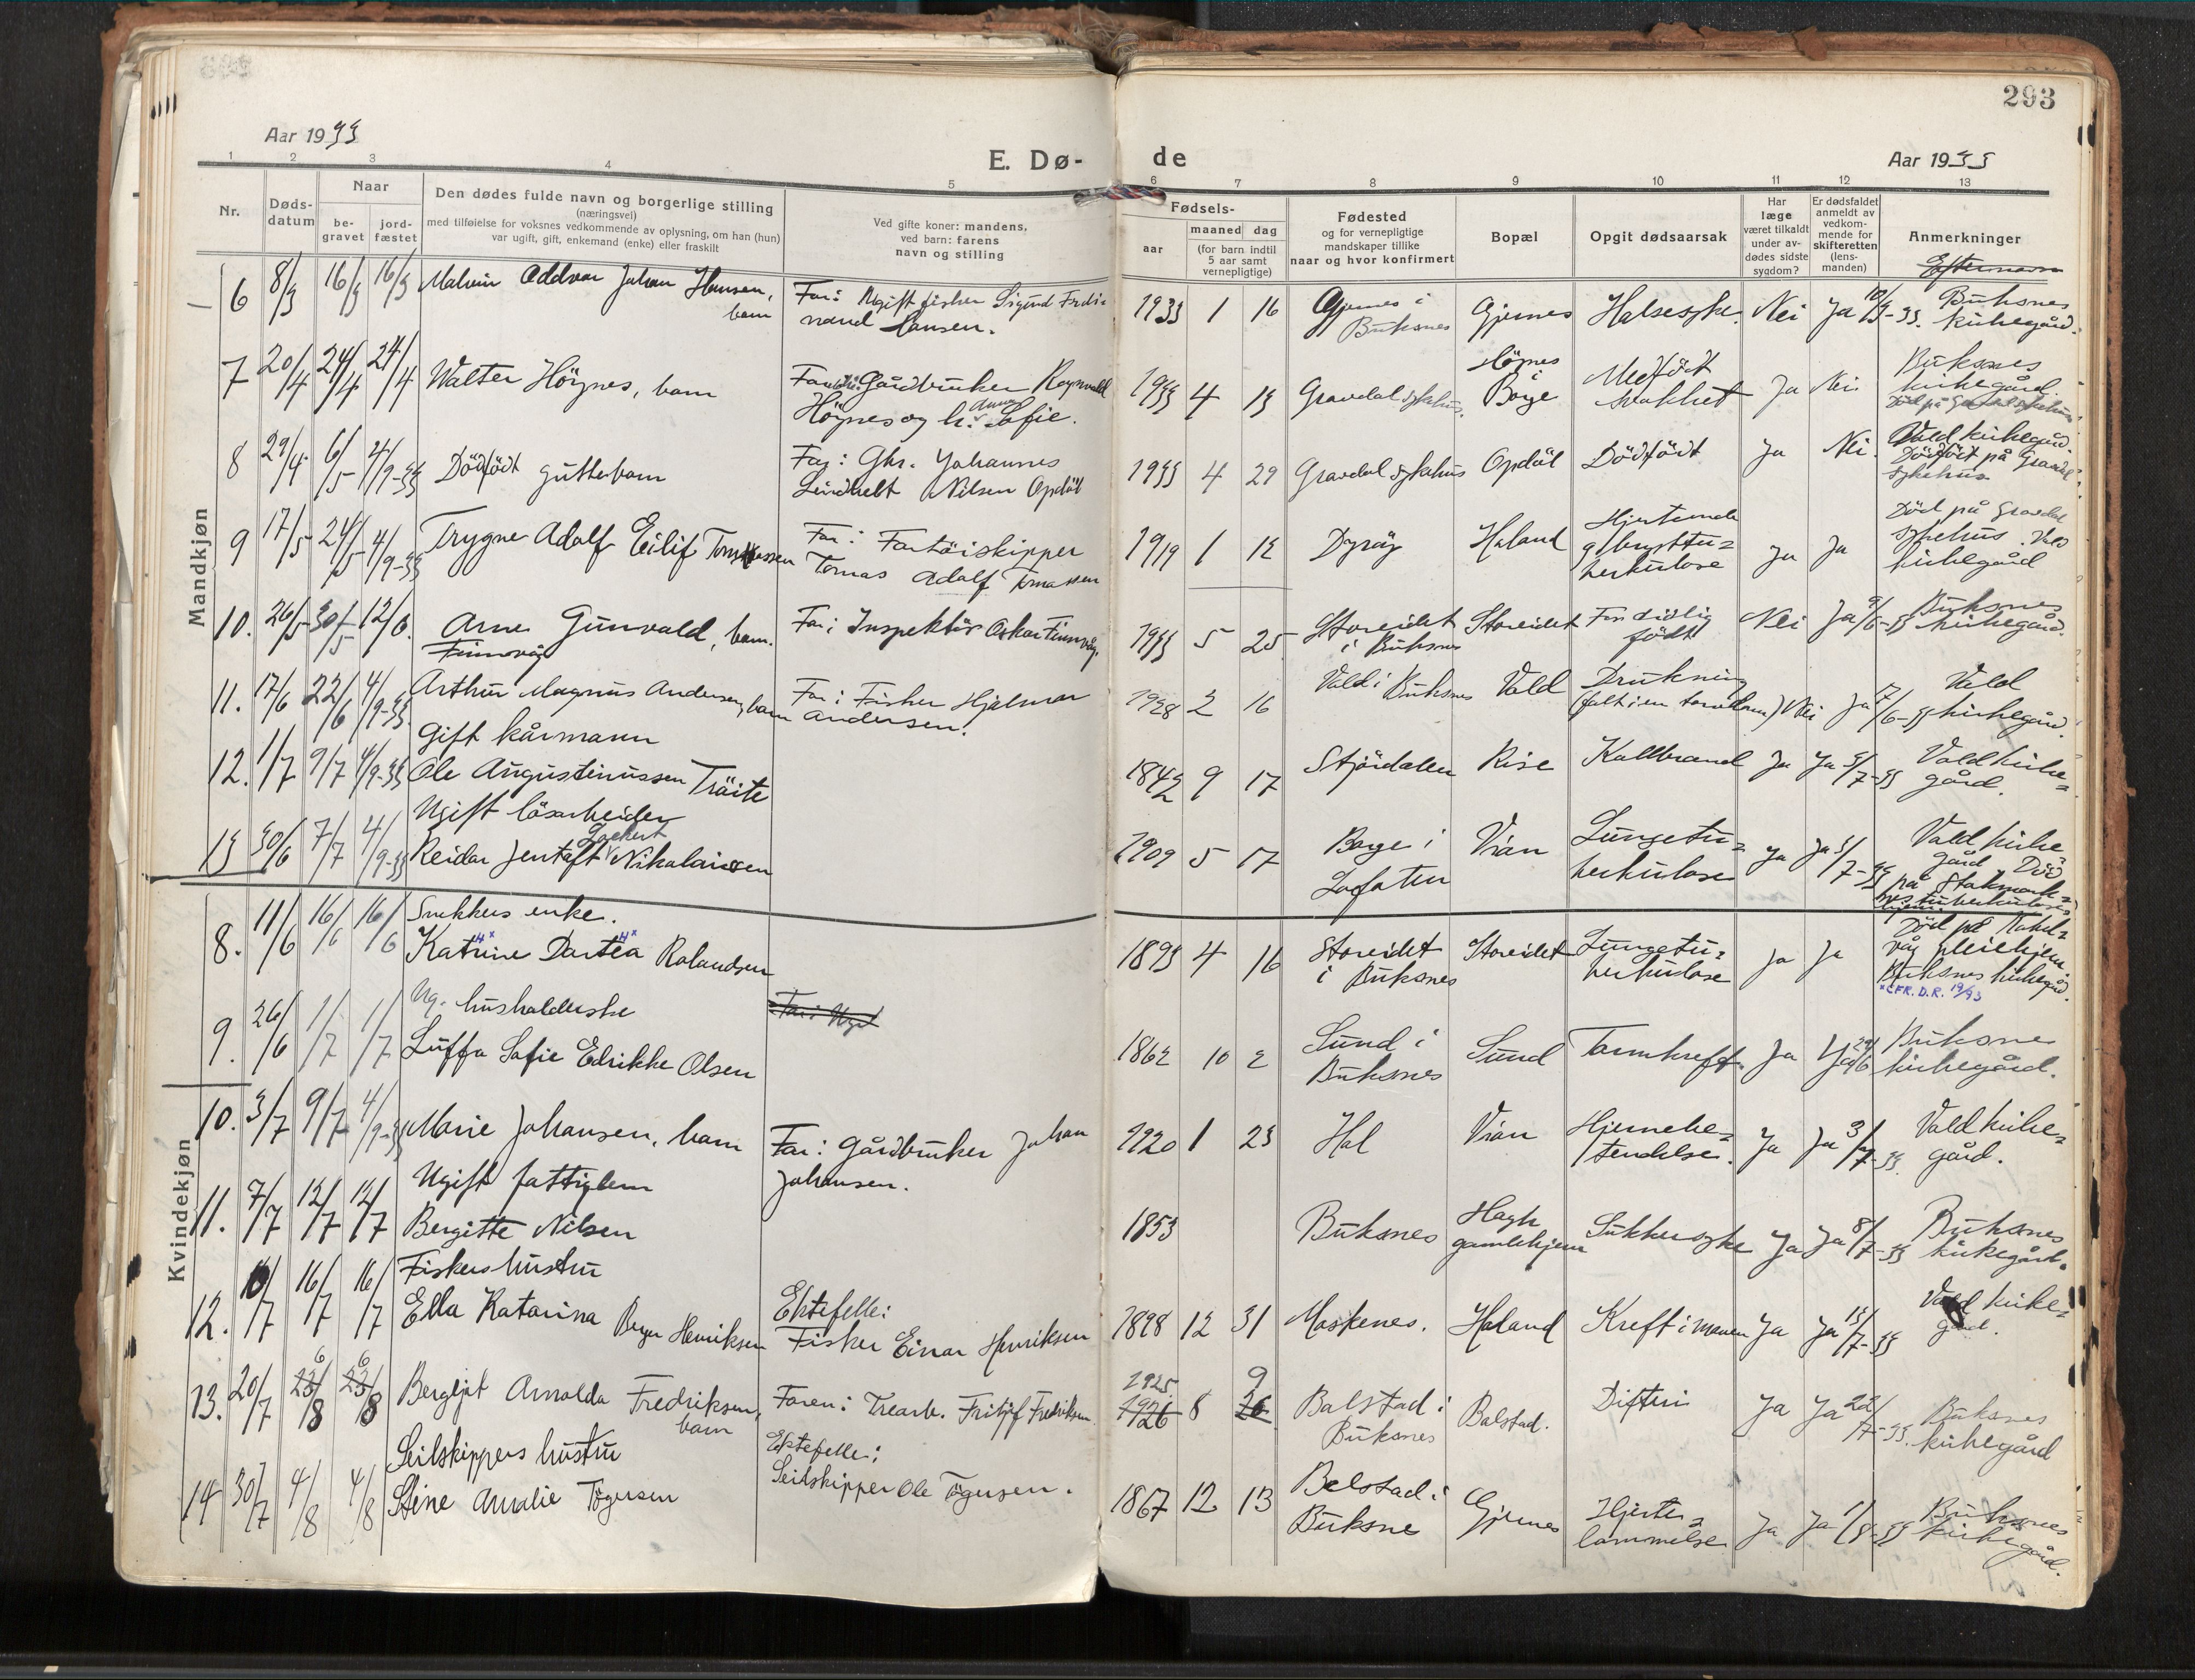 293
Aar 1933
E. Dø-
de
Aar 1933
1 2 3 4 5 6 7 8 9 10 11 12 13
Nr.
Døds-
datum
Naar
be-
gravet
jord-
fæstet
Den dødes fulde navn og borgerlige stilling
(næringsvei)
med tilføielse for voksnes vedkommende av oplysning, om han (hun)
var ugift, gift, enkemand (enke) eller fraskilt
Ved gifte koner: mandens,
ved barn: farens
navn og stilling
Fødsels-
aar
maaned dag
(for barn indtil
5 aar samt
vernepligtige)
Fødested
og for vernepligtige
mandskaper tillike
naar og hvor konfirmert
Bopæl
Opgit dødsaarsak
Har
læge
været tilkaldt
under av-
dødes sidste
sygdom?
Er dødsfaldet
anmeldt av
vedkom-
mende for
skifteretten
(lens-
manden)
Anmerkninger
Efternavn
Mandkjøn
6 8/3 16/3 16/3 Malvin Oddvar Johan Hansen,
barn
Far: Ugift fisker Sigurd Ferdi-
nand Hansen.
1933 1 16 Gjernes i
Buksnes
Gjernes Halsesyke. Nei Ja 10/3-33. Buksnes
kirkegård.
7 20/4 24/4 24/4 Walter Höynes, barn
Gårdbruker Ragnvald
Höynes og h. Anna Sofie.
1933 4 13 Gravdal sykehus.
Höynes
i
Borge
Medfödt
svakhet
Ja Nei. Buksnes
kirkegård.
Död på Gravdal sykehus
8 29/4 6/5 4/9-33 Dödfödt guttebarn
Far: Gbr. Johannes
Lindhelt Nilsen Opdöl
1933 4 29 Gravdal sykehus Opdöl Dödfödt Ja Nei. Vold kirkegård.
Dödfödt på Gravdal
sykehus
9 17/5 24/5 4/9-33 Trygve Adolf Eilif Tomassen
Far: Fartöiskipper
Tomas Adolf Tomassen
1919 1 12 Dyröy Holand Hjertande
g/brysttu=
berkulose
Ja Ja Död på Gravdal
sykehus. Vold
kirkegård
10. 26/5 30/5 12/6. Arne Gunvald, barn.
Finnvåg
Far: Inspektör Oskar Finnvåg.
1933 5 25 Storeidet
i Buksnes
Storeidet For tidlig
födt
Nei Ja 9/6-33 Buksnes
kirkegård.
11. 17/6 22/6 4/9-33. Arthur Magnus Andersen, barn
Far: Fisker Hjalmar
Andersen.
1928 2 16 Vold i Buksnes Vold Drukning
(falt i en torvdam) Nei Ja 17/6-33 Vold
kirkegård.
12. 1/7 9/7 4/9-33 Gift kårmann
Ole Augustinussen Träite
1842 9 17 Stjördalen Rise Kallbrand Ja Ja 5/7-33 Vold kirke=
gård.
13 30/6 7/7 4/9-33 Ugift lösarbeider
Reidar Jentoft Lockert Nikolaissen
1909 5 17 Borge i
Lofoten
Vian Lungetu=
berkulose
Ja Ja 3/7-33 Vold kirke=
gård Död
på Stokmark=
nes tuberkulose
hjem.
Kvindekjøn
8. 11/6 16/6 16/6 Snekkers enke.
Katrine Dortea Rolandsen
1893 4 16 Storeidet
i Buksnes
Storeidet Lungetu=
berkulose
Ja Ja Död på Kabel=
våg pleiehjem.
Buksnes kirkegård.
*CFR. D.R. 19/93
9. 26/6 1/7 1/7 Ug. husholderske
Luffa Sofie Edrikke Olsen
Far: Ugif
1862 10 2 Sund i
Buksnes
Sund Tarmkreft. Ja Ja 29/6 Buksnes
kirkegård.
10. 3/7 9/7 4/9-33 Marie Johansen, barn
Far: Gårdbruker Johan
Johansen.
1920 1 23 Hol Vian Hjernebe=
tendelse.
Ja Ja 3/7-33. Vold kirke=
gård.
11. 7/7 12/7 12/7 Ugift fattiglem
Bergitte Nilsen
1853 Buksnes Hagh
gamlehjem
Sukkersyke Ja Ja 8/7-33 Buksnes
kirkegård.
12. 10/7 16/7 16/7 Fiskers hustru
Ella Katarina Berger Henriksen
Ektefelle:
Fisker Einar Henriksen
1898 12 31 Moskenes. Holand Kreft i maven Ja Ja 13/7-33 Vold kirke=
gård.
13. 20/7 6 23/8 6 23/8 Bergljot Arnolda Fredriksen,
barn
Faren: Trearb. Fritjof Fredriksen
1925. 1926 8 9 26 Balstad i
Buksnes
Balstad. Difteri Ja Ja 22/7-33. Buksnes
kirkegård
14 30/7 4/8 4/8 Seilskippers hustru
Stine Amalie Tögersen
Ektefelle:
Seilskipper Ole Tögersen.
1867 12 13 Balstad i
Buksne
Gjernes Hjerte=
lammelse
Ja Ja 1/8-33 Buksnes
kirkegård.